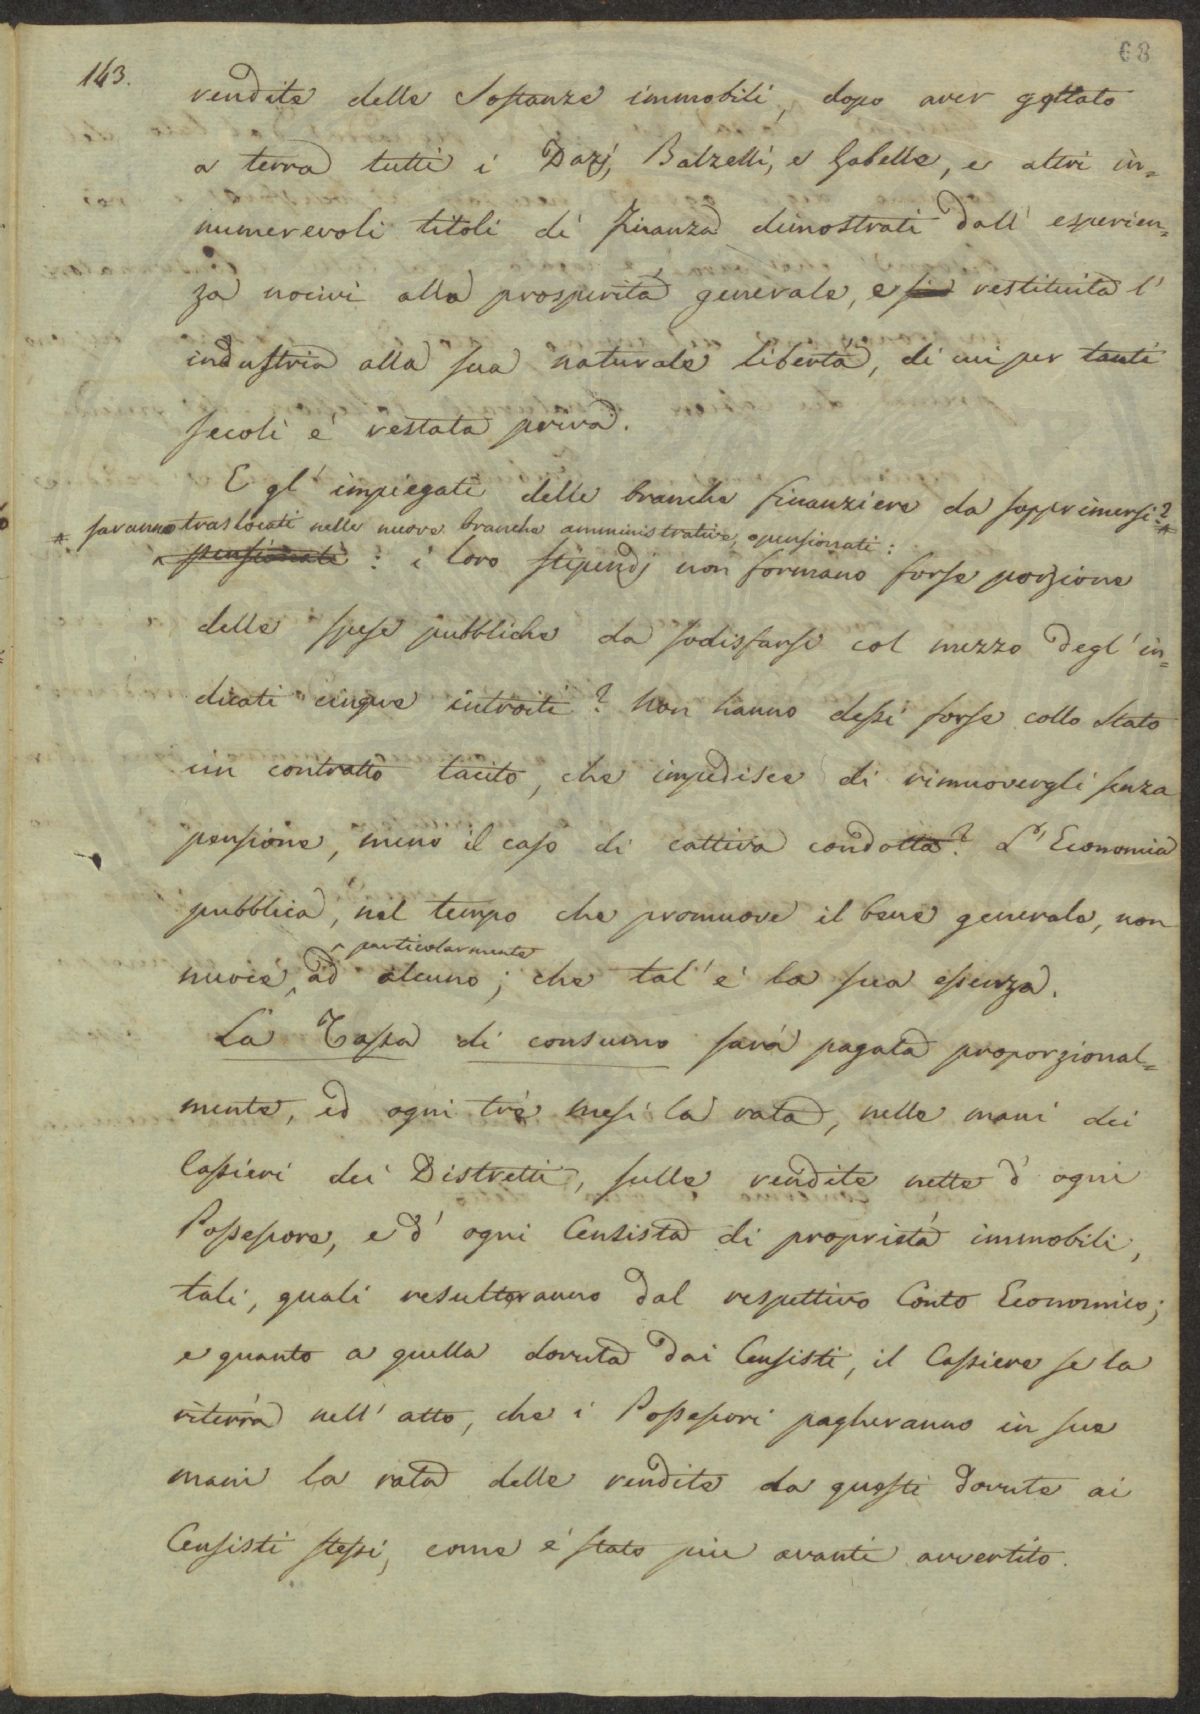 143.
68
rendite delle Sostanze immobili, dopo aver gettato
a terra tutti i Dazj, Balzelli, e Gabelle, e altri in=
numerevoli titoli di Finanza dimostrati dall' esperien=
za nocivi alla prosperità generale, e sia restituita l'
industria alla sua naturale libertà, di cui per tanti
secoli è restata priva.
E gl' impiegati delle branche finanziere da sopprimersi?*
* saranno traslocati nelle nuove branche amministrative, o pensionati:
pensionati : i loro stipendj non formano forse porzione
delle spese pubbliche da sodisfarsi col mezzo degl' in=
dicati cinque introiti? Non hanno dessi forse collo Stato
un contratto tacito, che impedisce di rimuovergli senza
pensione, meno il caso di cattiva condotta? L' Economia
pubblica, nel tempo che promuove il bene generale, non
particolarmente
nuoce ad alcuno; che tal' è la sua essenza.
La Tassa di consumo sarà pagata proporzional=
mente, ed ogni trè mesi la rata, nelle mani dei
Cassieri dei Distretti, sulle rendite nette d' ogni
Possessore, e d' ogni Censista di proprietà immobili,
tali, quali resulteranno dal respettivo Conto Economico;
e quanto a quella dovuta dai Censisti, il Cassiere se la
riterrà nell' atto, che i Possessori pagheranno in sue
mani la rata delle rendite da questi dovute ai
Censisti stessi, come è stato più avanti avvertito.